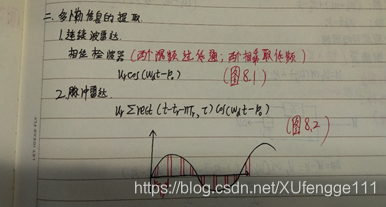 二.多卜勒信息的提取
1.连续波雷达
相位检波器(两个谐振过低通;两个相乘取低频)
Ur cos(ωdt-φ0) (图8.1)
2.脉冲雷达
Ur Σrect(t-tr-nTr,τ)cos(ωdt-φ0)
(图8.2)
https://blog.csdn.net/XUfengge111